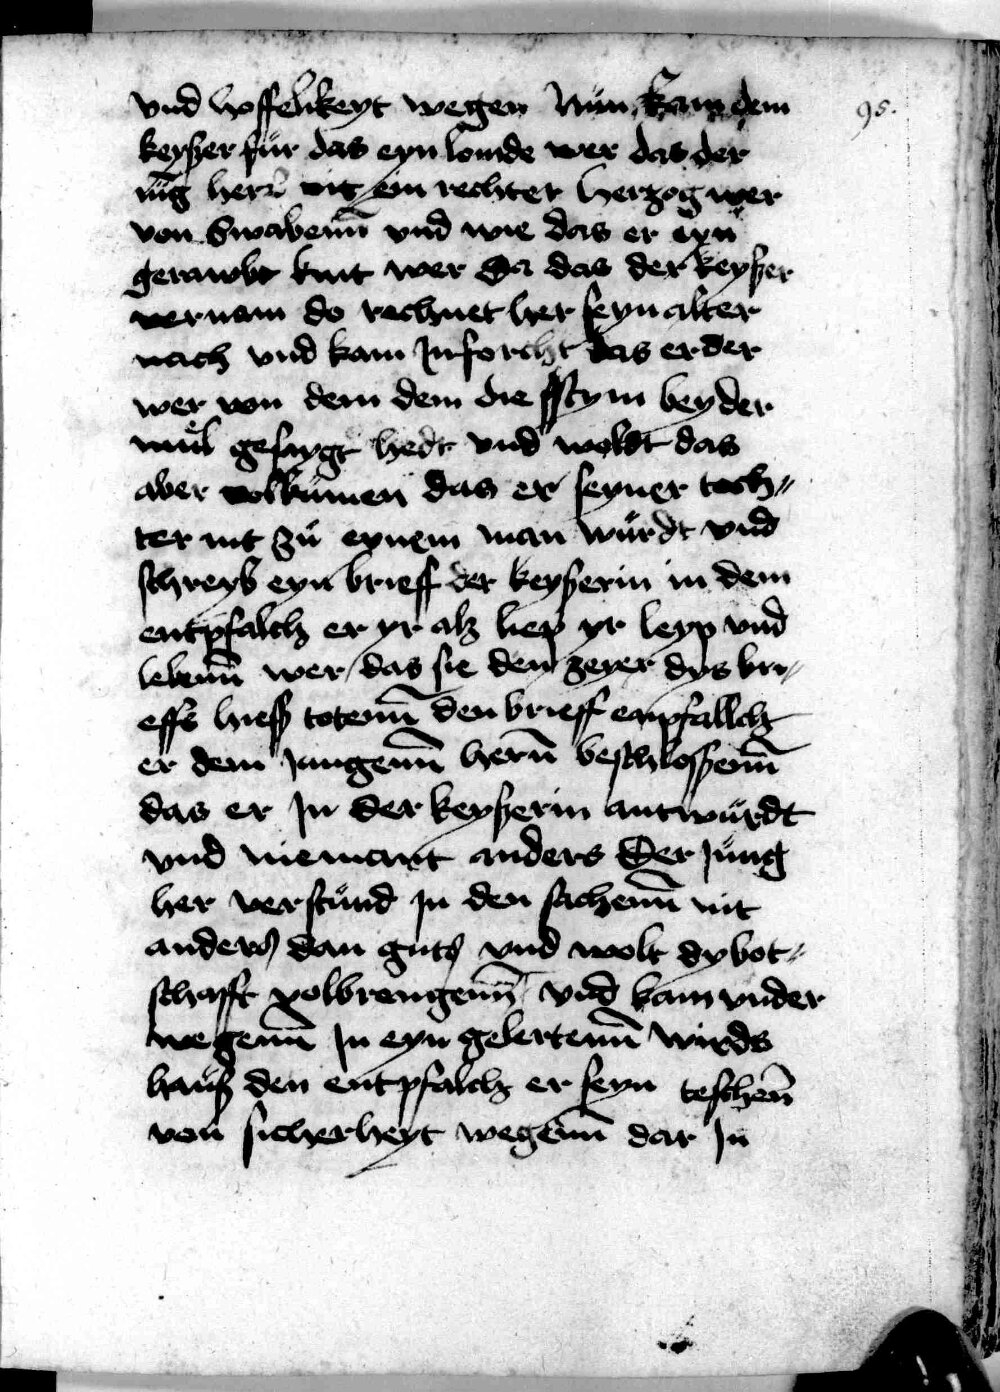 vnd hoffelikeyt wegen Nün kam dem
95.
keyßer für das eyn lomde wer das der
iüg her nit ein rechter herzog wer
von Swabenn vnd wie das er eyn
gerawbt kint wer Da das der keyßer
vernam do rechnet her seyn alter
nach vnd kam Jn forcht das er der
wer von dem dem die stym bey der
mül gesaygt hedt vnd woldt das
aber volkümen das er seyner toch-
ter nit zü eynem man würdt vnd
schreyb eyn brieff der keyßerin in dem
entpfalch er yr alß liep yr leyp vnd
lebenn wer das sie den zeyer dys bri-
effs hieß totenn den brieff enpfallch
er dem Jungenn hern beschlossenn
das er Jn der keyßerin antwürdt
vnd niemant anders Der Jüng
her verstünd Jn den sachenn nit
anders dan guts vnd wolt dy bot-
schafft volbrengenn vnd kam vnder
wegenn Jn eyn gelertenn wirds
hauß den entpfalch er seyn teschen
von sicherheyt wegenn dar Jn